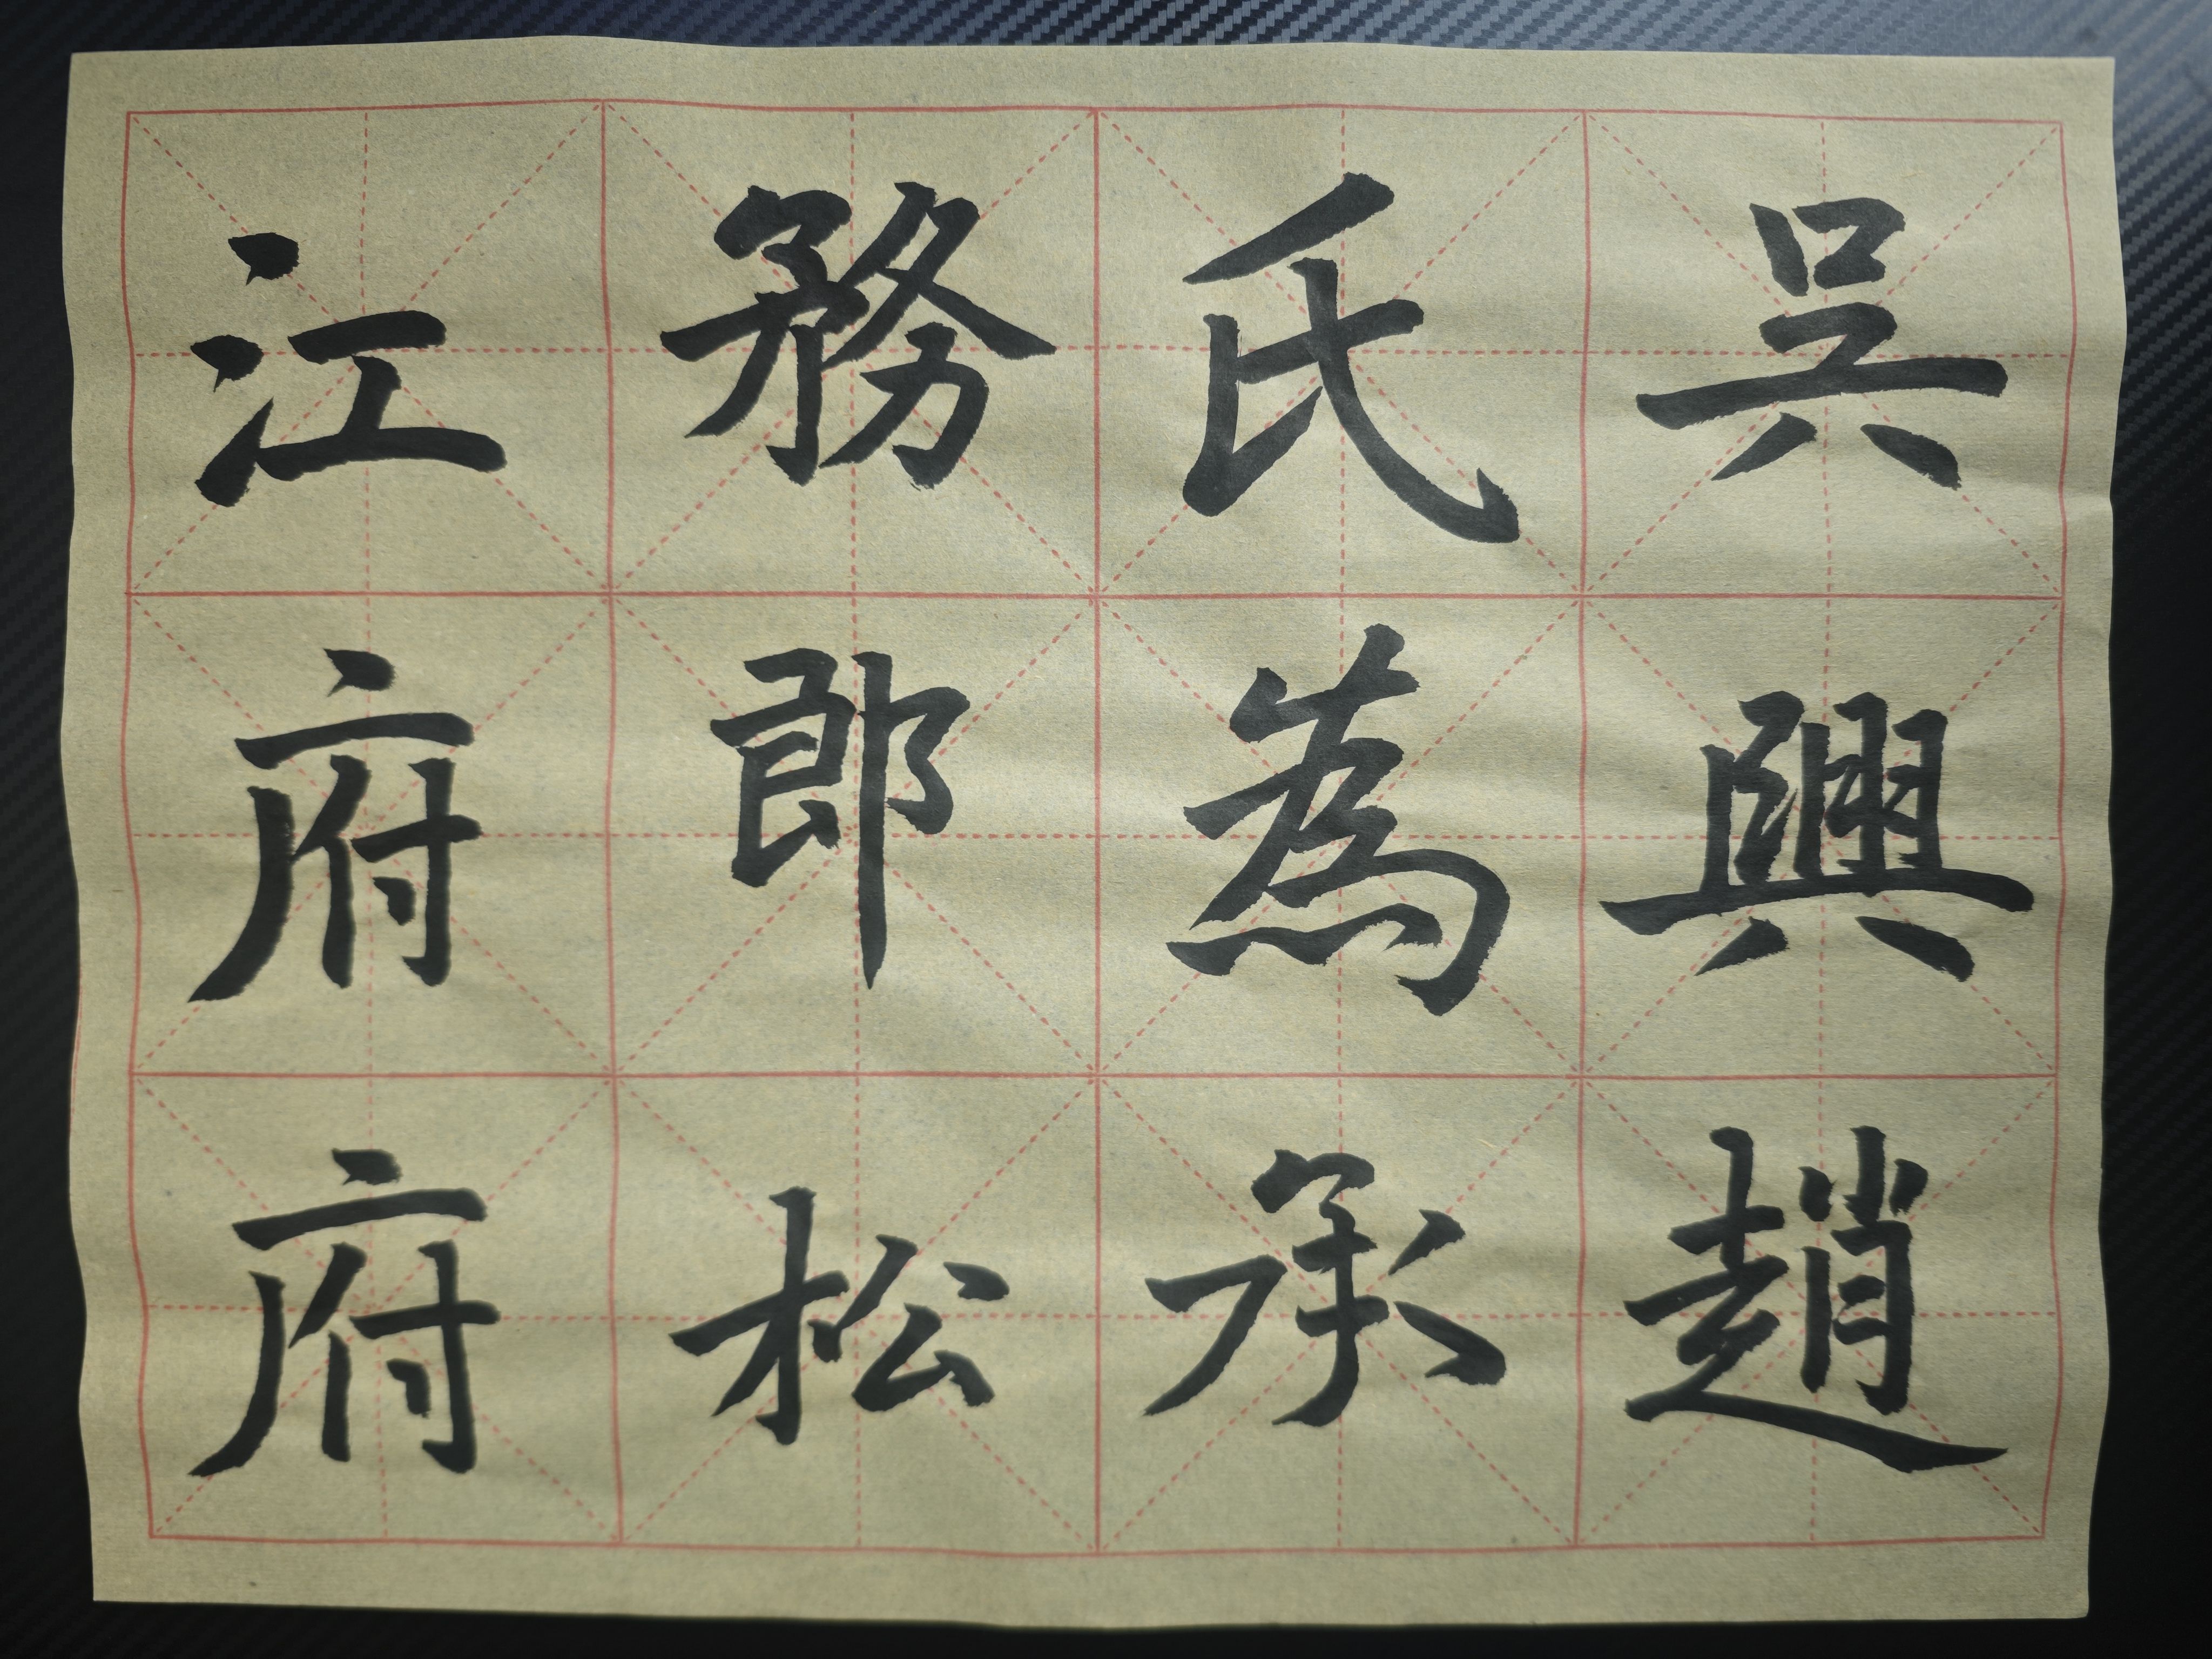 吳興趙
氏為承
務郎松
江府府